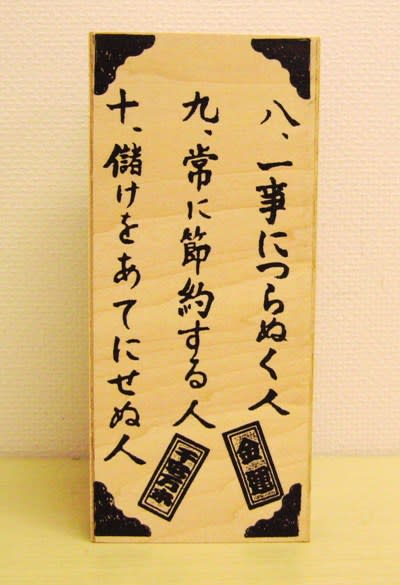 八、一事につらぬく人
九、常に節約する人
十、儲けをあてにせぬ人
金運
千客万来